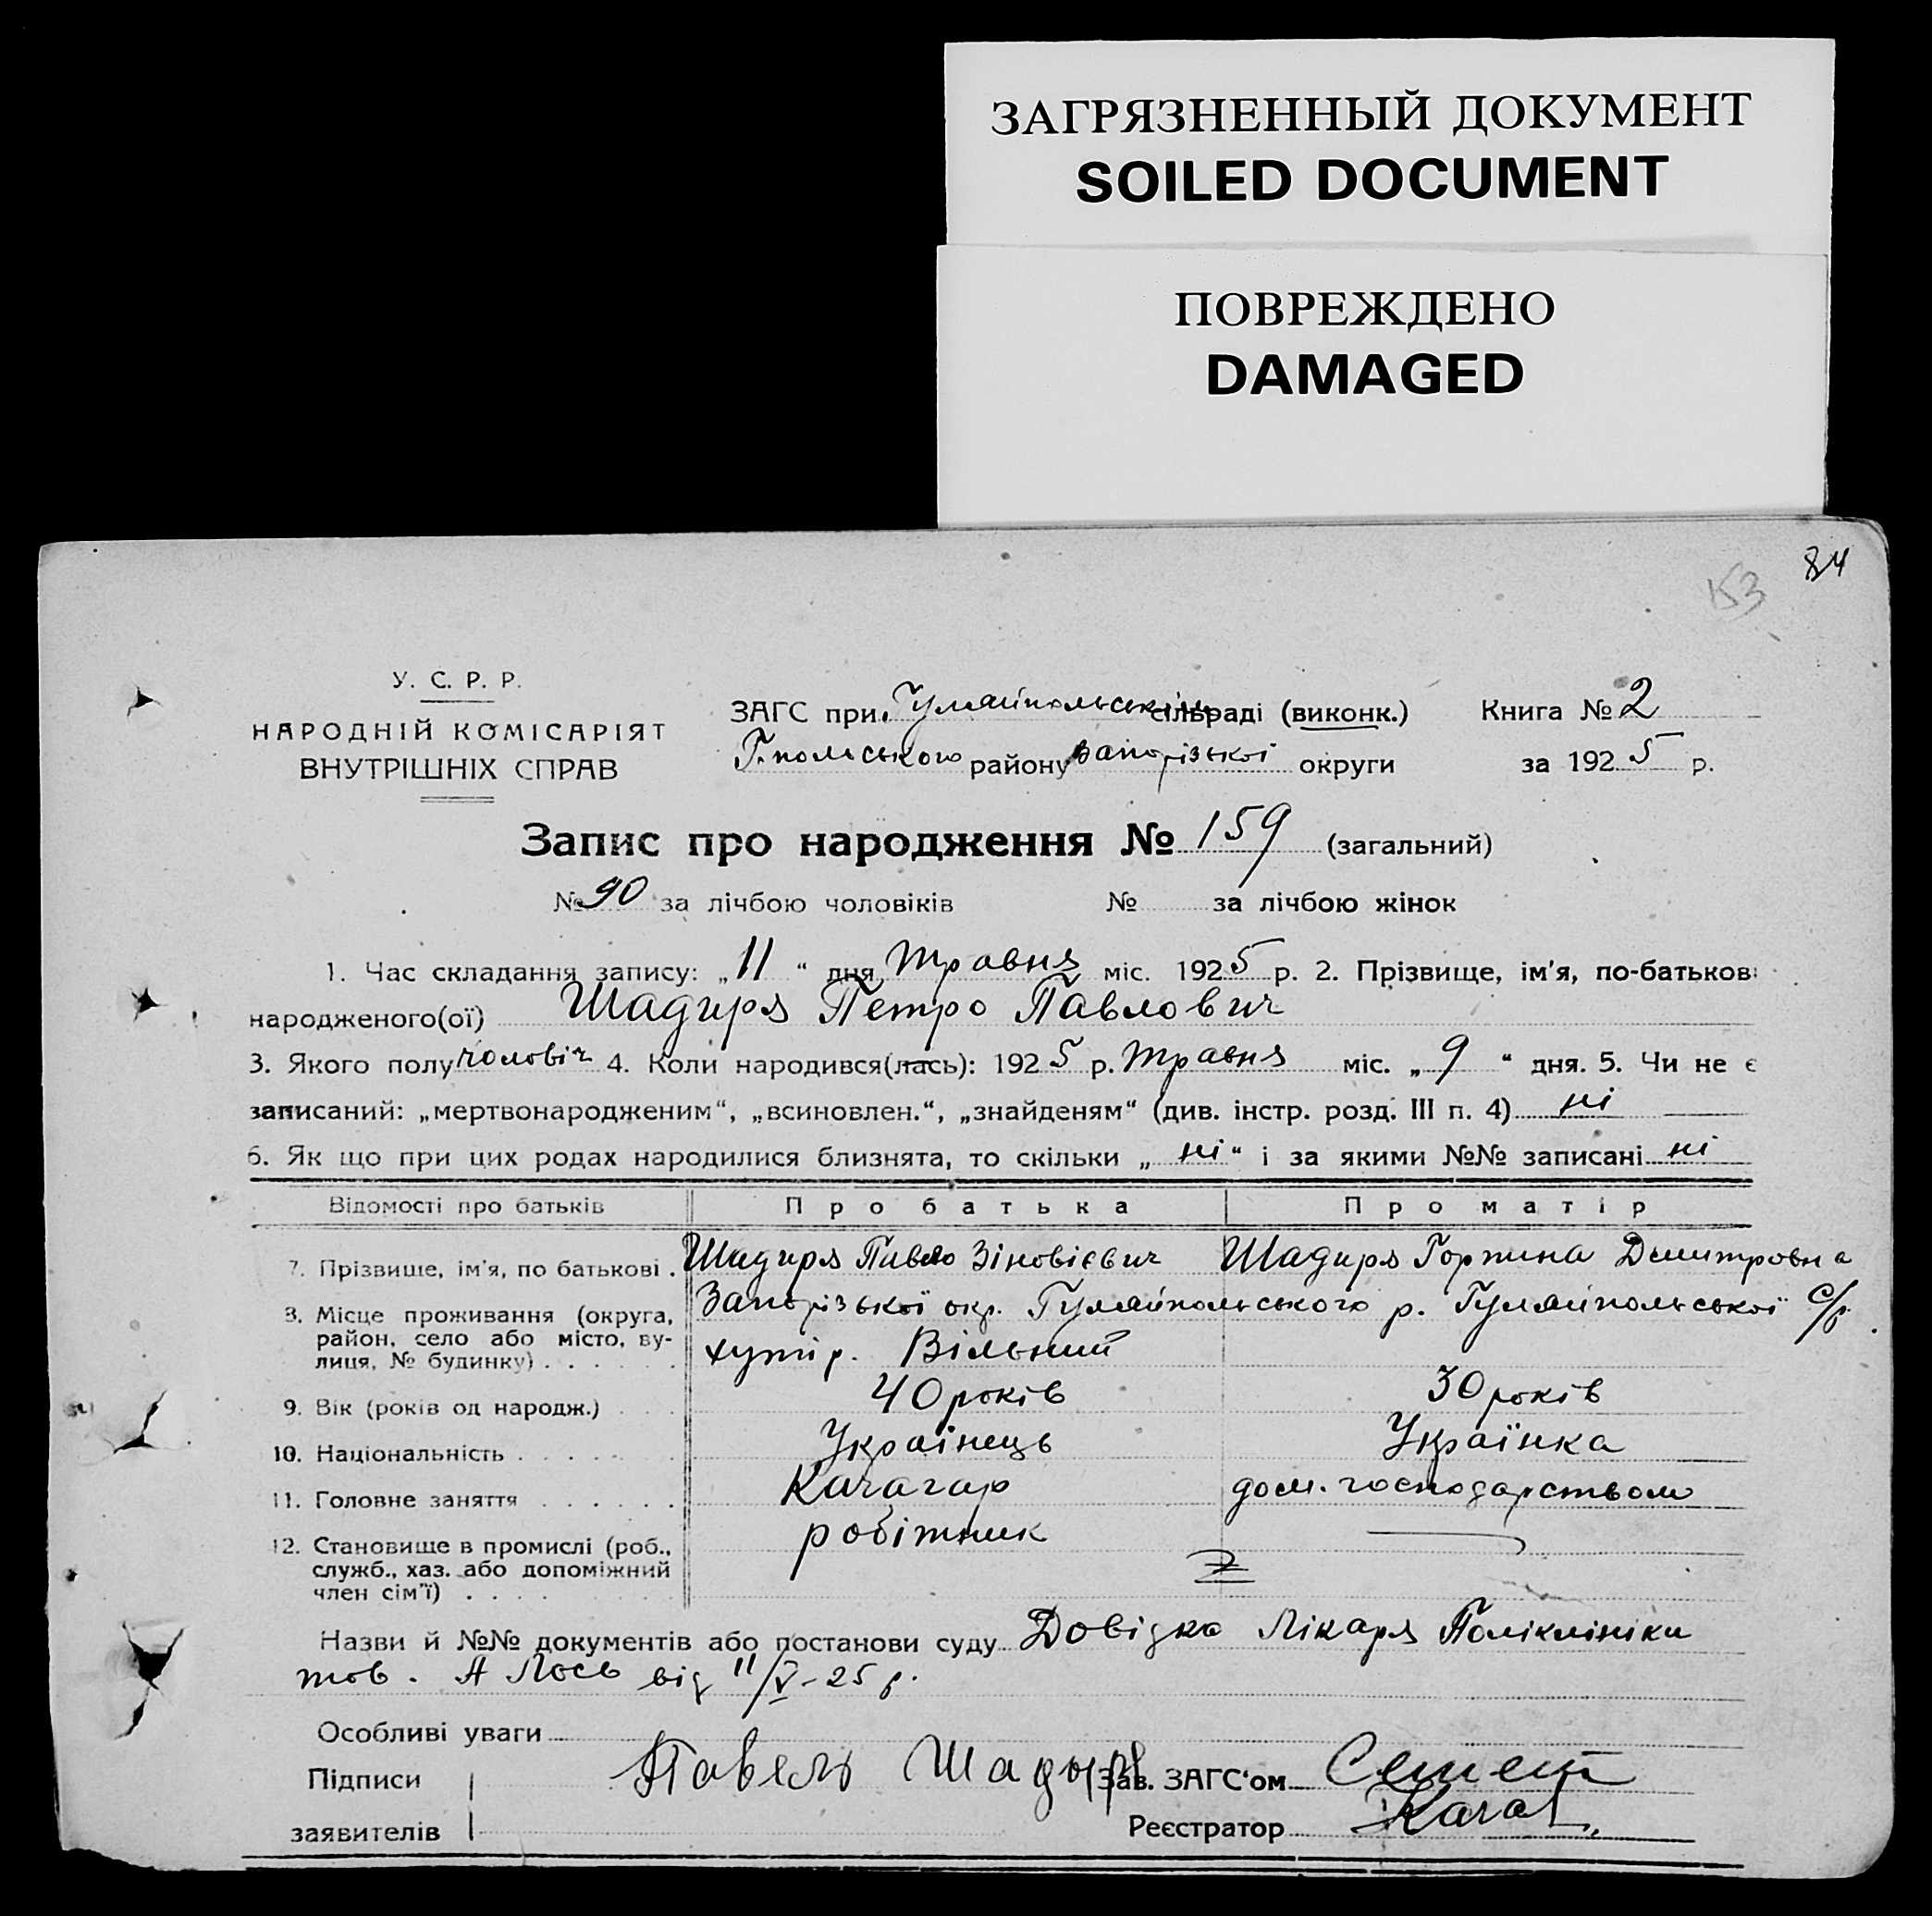 ЗАГРЯЗНЕННЫЙ ДОКУМЕНТ
SOILED DOCUMENT
ПОВРЕЖДЕНО
DAMAGED
84
153
У. С. Р. Р.
НАРОДНІЙ КОМІСАРІЯТ
ВНУТРІШНІХ СПРАВ
ЗАГС при Гуляйпольськім сільраді (виконк.) Книга № 2
Г.польського району Запорізької округи за 1925 р.
Запис про народження № 159 (загальний)
№ 90 за лічбою чоловіків № за лічбою жінок
1. Час складання запису: „11“ дня травня міс. 1925 р. 2. Прізвище, ім'я, по-батькові
народженого(ої) Шадиря Петро Павлович
3. Якого полу чоловіч 4. Коли народився(лась): 1925 р. травня міс. „9“ дня. 5. Чи не є
записаний: „мертвонародженим“, „всиновлен.“, „знайденям“ (див. інстр. розд. III п. 4) ні
6. Як що при цих родах народилися близнята, то скільки „ні“ і за якими №№ записані ні
Відомості про батьків Про батька Про матір
7. Прізвище, ім'я, по батькові . Шадиря Павло Зіновієвич Шадиря Горпина Дмитровна
8. Місце проживання (округа, район, село або місто, вулиця, № будинку) . . . . . . Запорізької окр. Гуляйпольського р. Гуляйпольської с/р.
хутір. Вільний
9. Вік (років од народж.) . . . 40 років 30 років
10. Національність . . . . . . Українець Українка
11. Головне заняття . . . . . . Качагар дом. господарством
12. Становище в промислі (роб., служб., хаз. або допоміжний член сім'ї) . . . . робітник —
Z
Назви й №№ документів або постанови суду Довідка Лікаря Поліклініки
тов. А Лось від 11/V-25 р.
Особливі уваги
Підписи Павель Шадыря Зав. ЗАГС'ом
заявителів Реєстратор